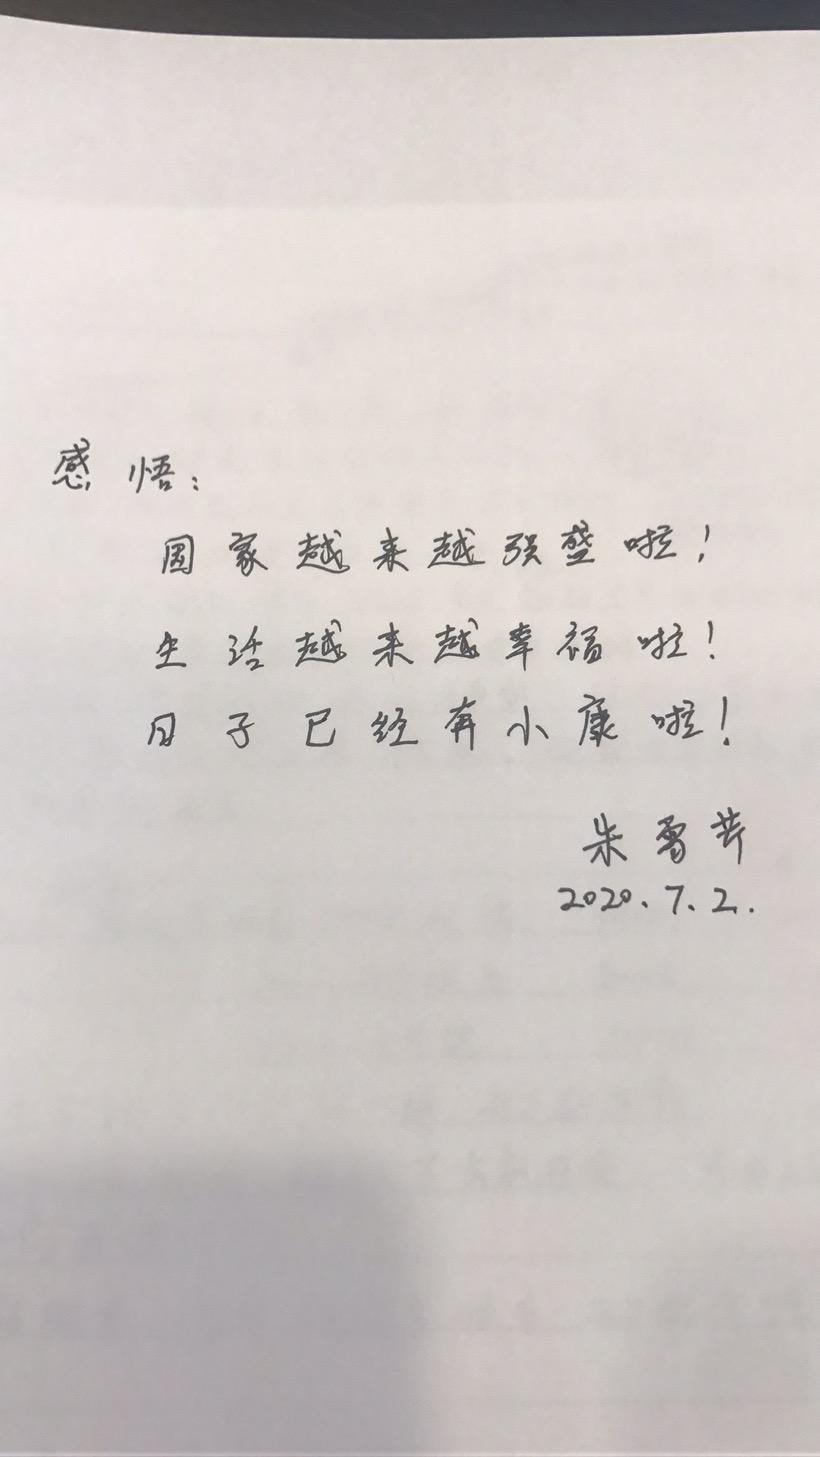 感悟:
国家越来越强盛啦!
生活越来越幸福啦!
日子已经奔小康啦!
朱雪芹
2020.7.2.